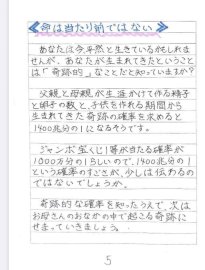 命は当たり前ではない
あなたは今、平然と生きているかもしれま
せんが、あなたが生まれてきたということ
は「奇跡的」なことだと知っていますか？
父親と母親が生涯かけて作る精子
と卵子の数と、子供を作れる期間から
生まれてきた奇跡の確率を求めると
1400兆分の1になるそうです。
ジャンボ宝くじ1等が当たる確率が
1000万分の1らしいので、1400兆分の1
という確率のすごさが、少しは伝わるの
ではないでしょうか。
奇跡的な確率を知ったうえで、次は
お母さんのおなかの中で起こる奇跡に
せまっていきましょう。
5